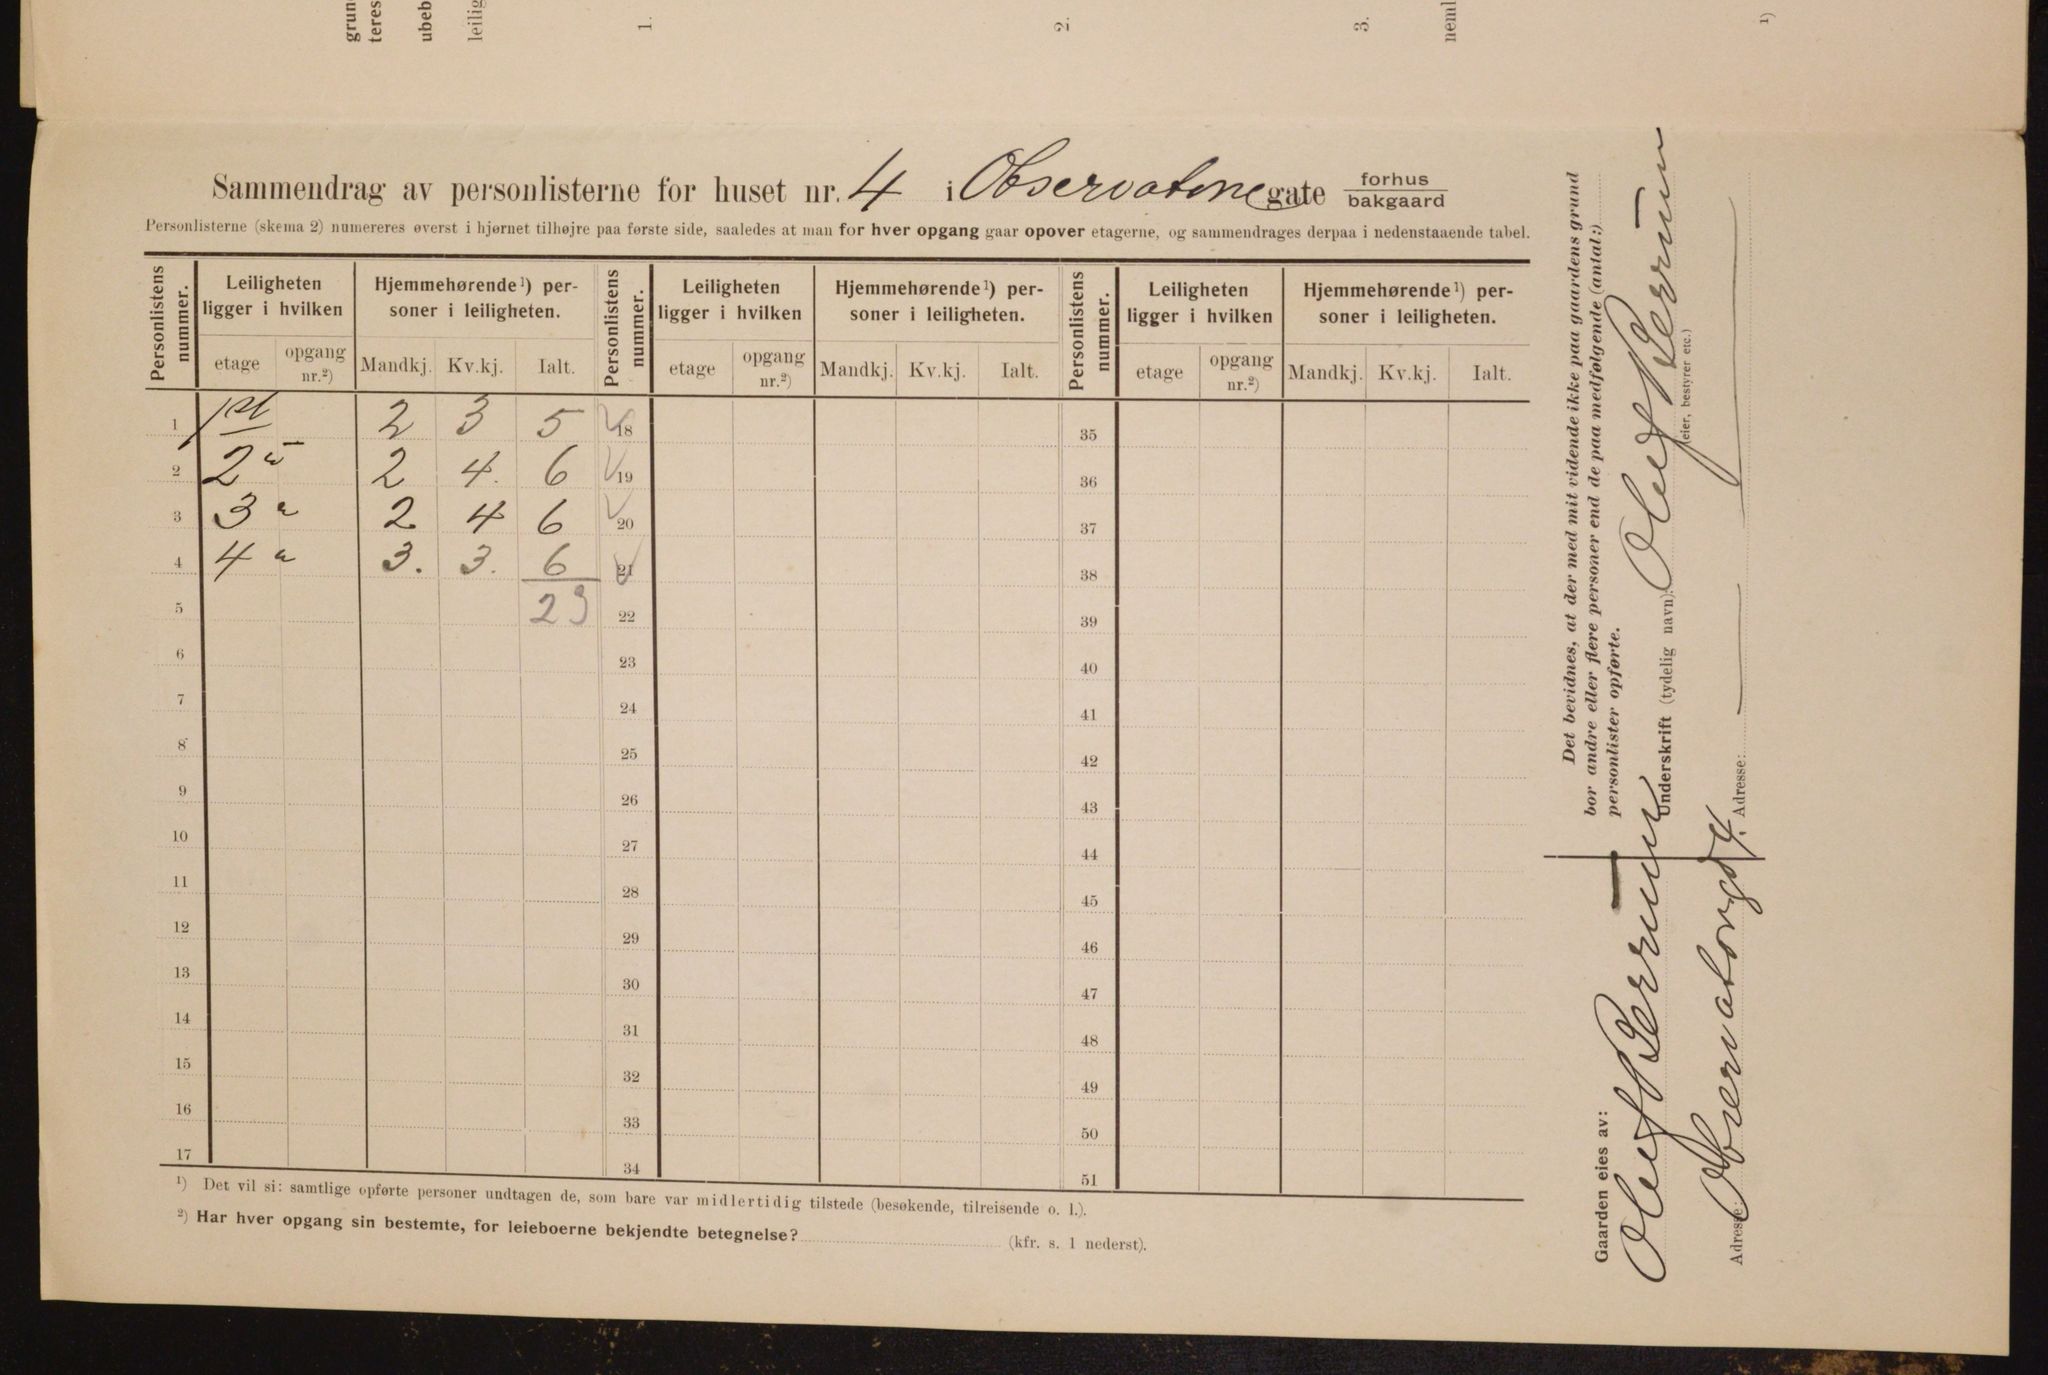 grun
teres
ubeb
leilig
1.
2.
3.
neml
1)
Sammendrag av personlisterne for huset nr. 4 i Observatorie gate forhus
bakgaard
Personlisterne (skema 2) numereres øverst i hjørnet tilhøjre paa første side, saaledes at man for hver opgang gaar opover etagerne, og sammendrages derpaa i nedenstaaende tabel.
Personlistens nummer. Leiligheten ligger i hvilken Hjemmehørende 1) personer i leiligheten. Personlistens nummer. Leiligheten ligger i hvilken Hjemmehørende 1) personer i leiligheten. Personlistens nummer. Leiligheten ligger i hvilken Hjemmehørende 1) personer i leiligheten.
etage opgang nr.2) Mandkj. Kv.kj. Ialt. etage opgang nr.2) Mandkj. Kv.kj. Ialt. etage opgang nr.2) Mandkj. Kv.kj. Ialt.
1 1st 2 3 5 18 35
2 2 " 2 4. 6 19 36
3 3 " 2 4 6 20 37
4 4 " 3. 3. 6 21 38
5 23 22 39
6 23 40
7 24 41
8 25 42
9 26 43
10 27 44
11 28 45
12 29 46
13 30 47
14 31 48
15 32 49
16 33 50
17 34 51
1) Det vil si: samtlige opførte personer undtagen de, som bare var midlertidig tilstede (besøkende, tilreisende o. l.).
2) Har hver opgang sin bestemte, for leieboerne bekjendte betegnelse? (kfr. s. 1 nederst).
Det bevidnes, at der med mit vidende ikke paa gaardens grund
bor andre eller flere personer end de paa medfølgende (antal:)
personlister opførte.
Underskrift (tydelig navn): Oluf
(eier, bestyrer etc.)
Adresse:
Gaarden eies av:
Oluf
Adresse: Observatorgd 4.